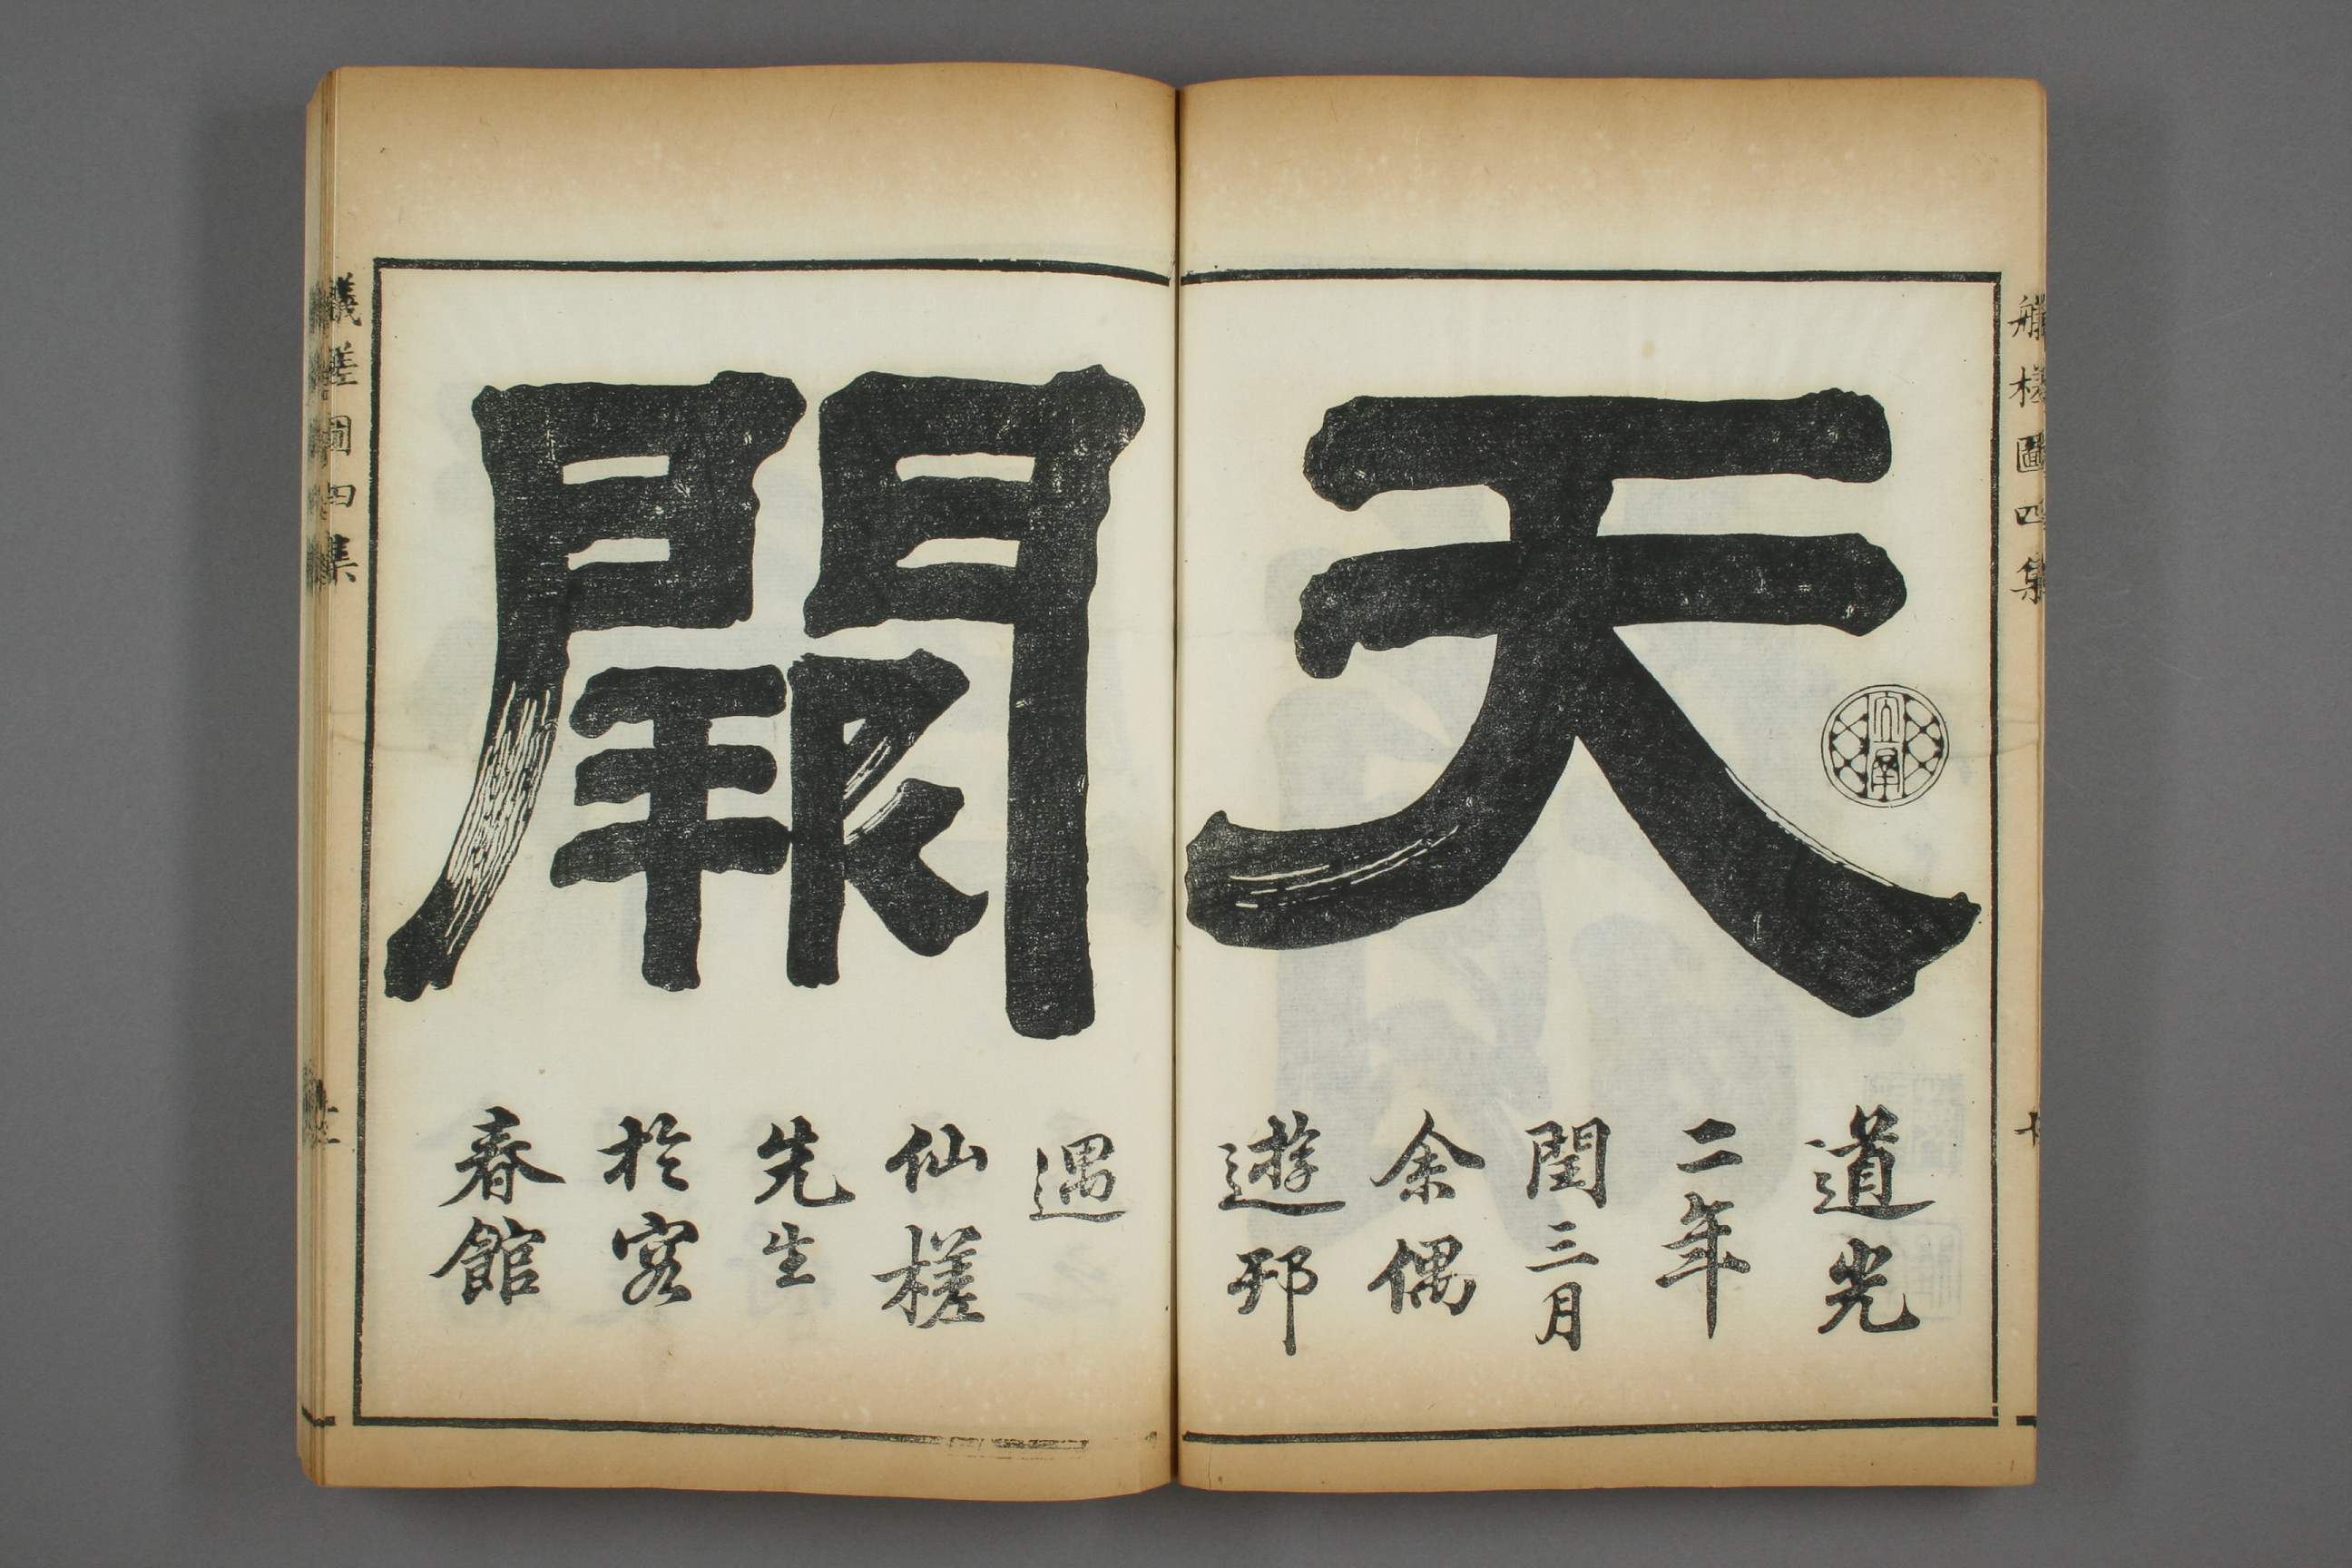 艤槎圖四集
天
道光
二年
閏三月
余偶
遊邗
遇
仙槎
先生
於客
春館
艤槎圖四集